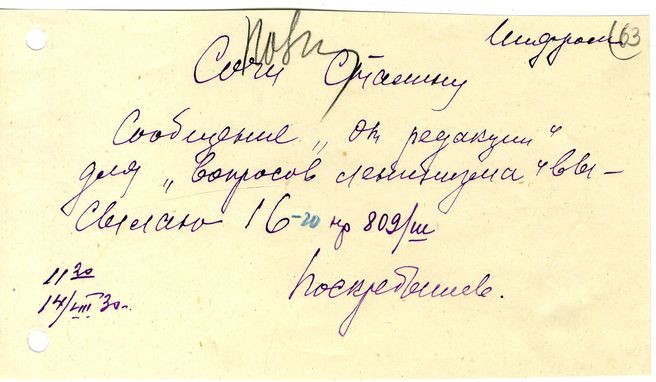 Шифром 63
Сочи Сталину
Сообщение „От редакции“
для „Вопросов ленинизма“ вы-
сылаю 16-го нр 809/ш
11 30
14/VIII 30. Поскребышев.